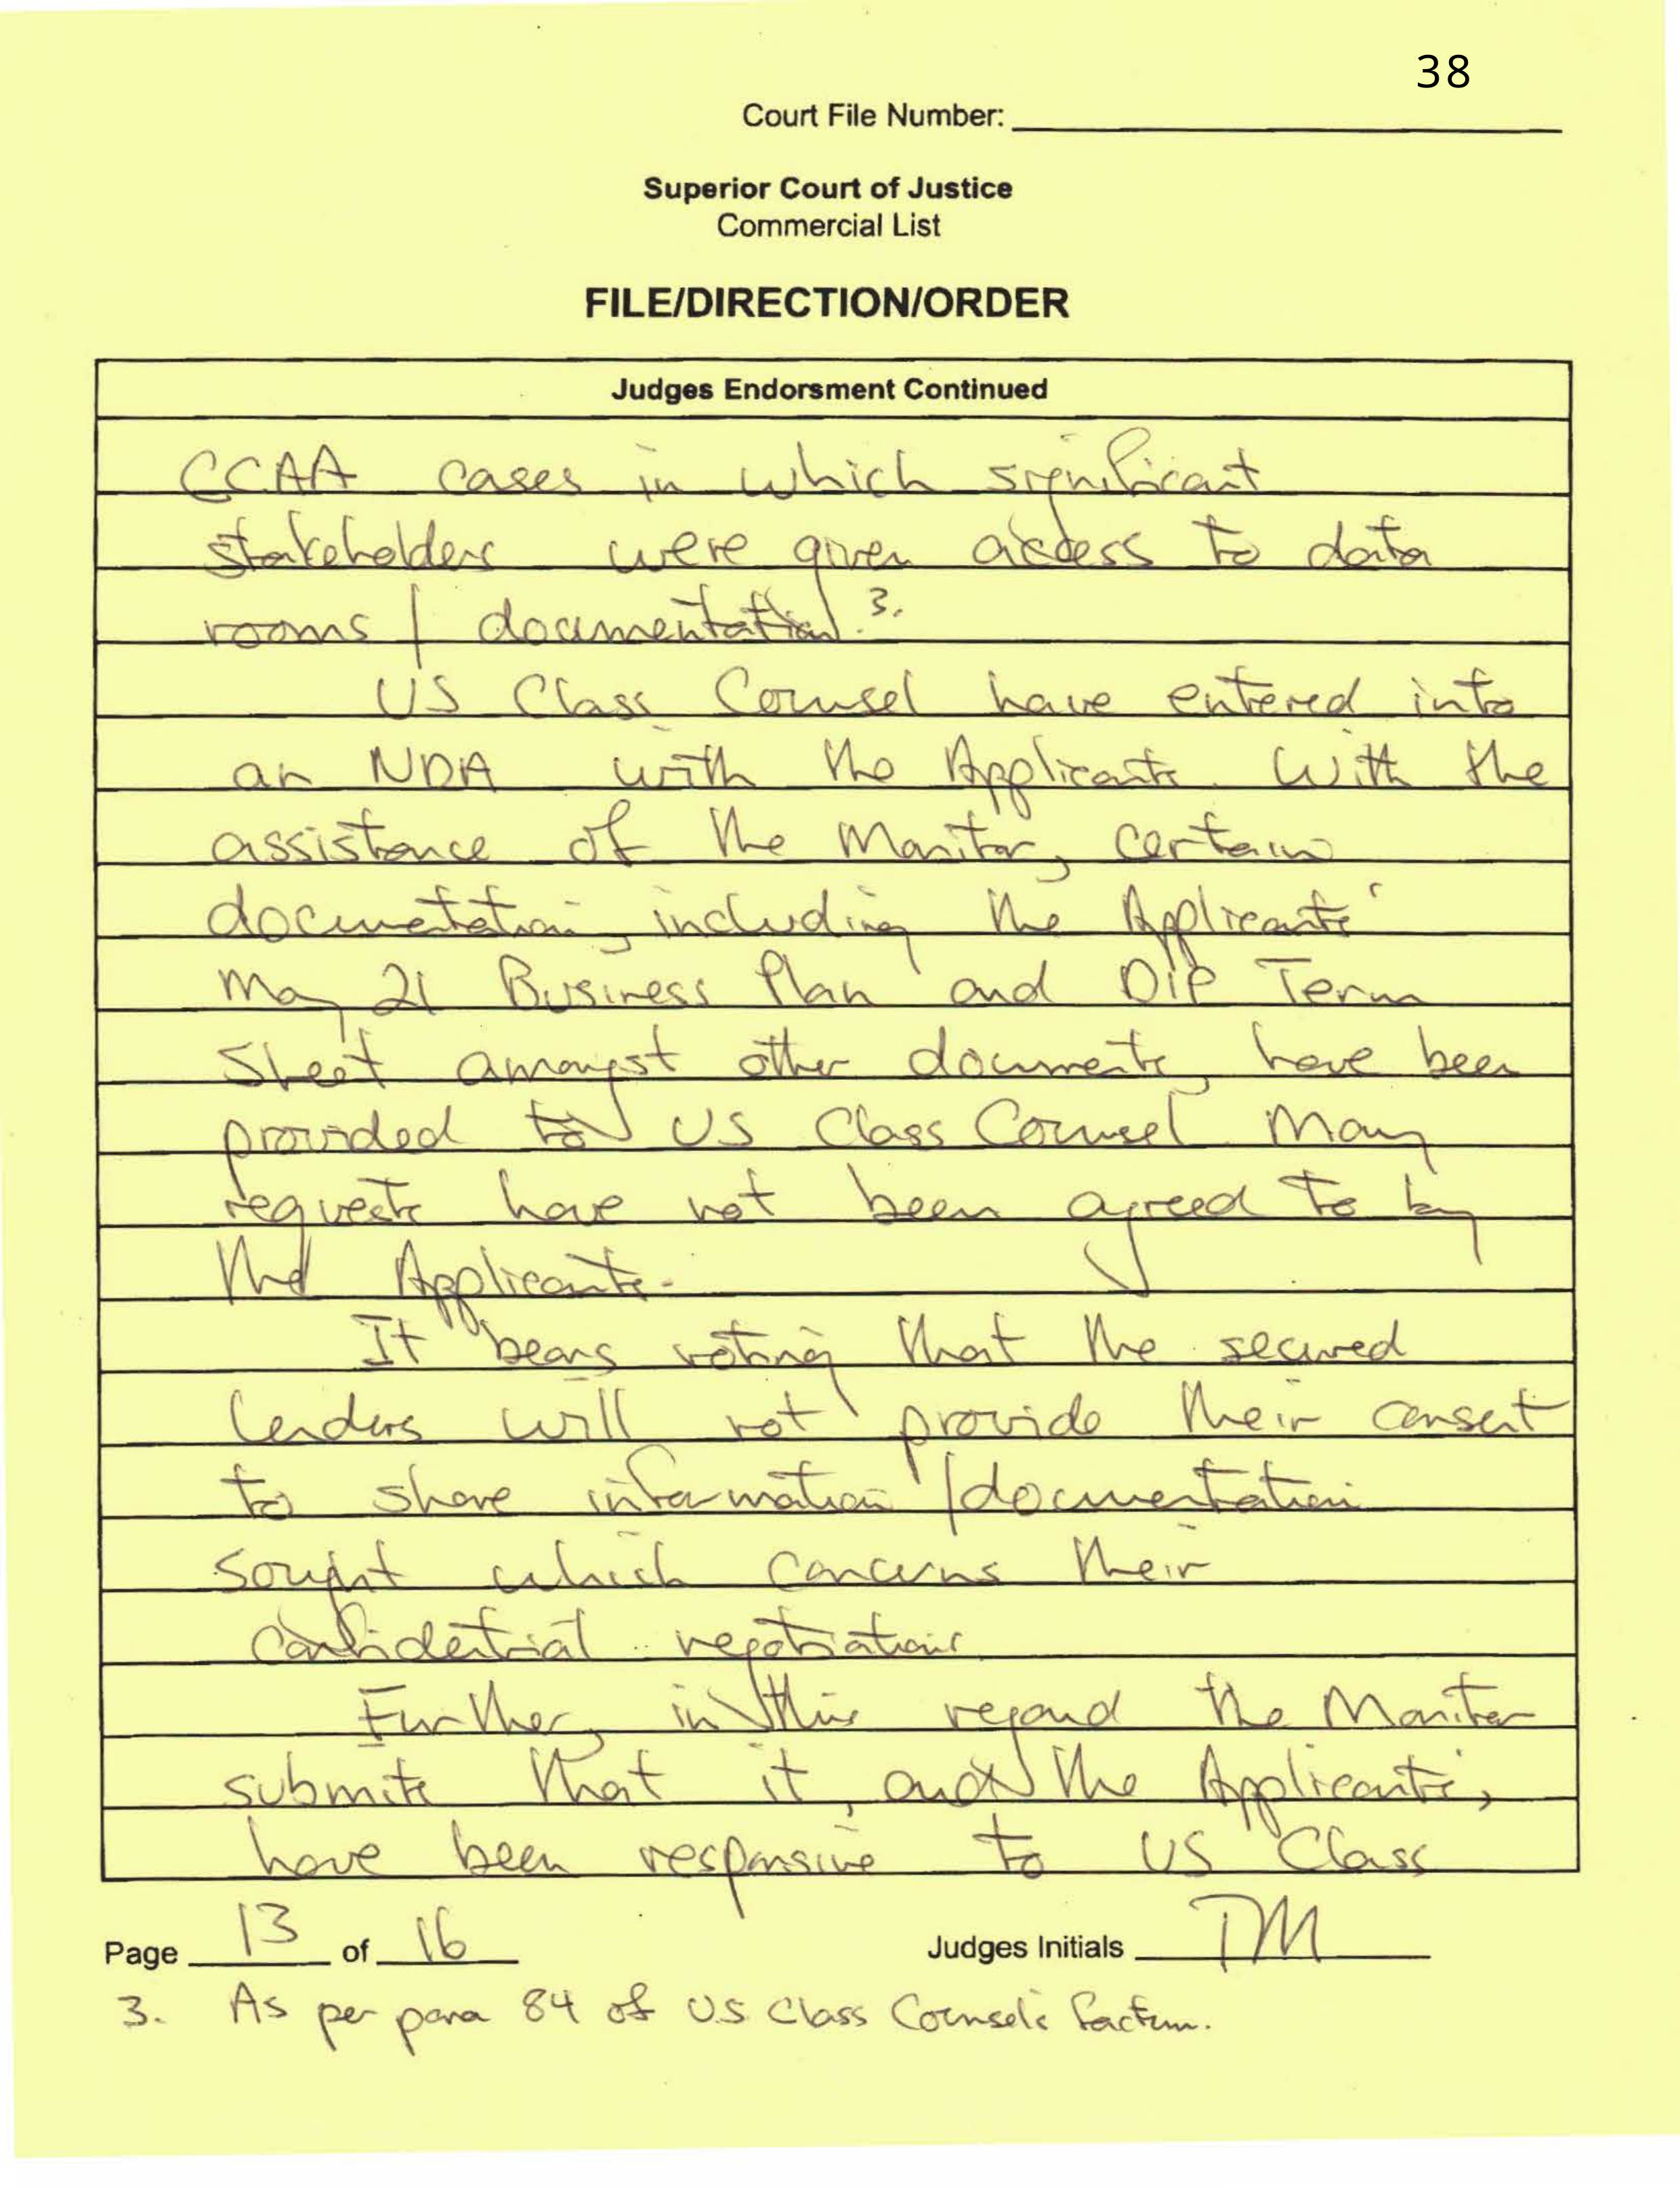 38
Court File Number:
Superior Court of Justice
Commercial List
FILE/DIRECTION/ORDER
Judges Endorsment Continued
CCAA cases in which significant
stakeholders were given access to data
rooms / documentation.3.
US Class Counsel have entered into
an NDA with the Applicants. With the
assistance of the Monitor, certain
documentation, including the Applicants'
May 21 Business Plan and DIP Term
Sheet amongst other documents, have been
provided to US Class Counsel. Many
requests have not been agreed to by
the Applicants.
It bears noting that the secured
lenders will not provide their consent
to share information / documentation
sought which concerns their
confidential negotiations.
Further, in this regard the Monitor
submits that it, and the Applicants,
have been responsive to US Class
Page 13 of 16 Judges Initials TM
3. As per para 84 of U.S. Class Counsel's factum.